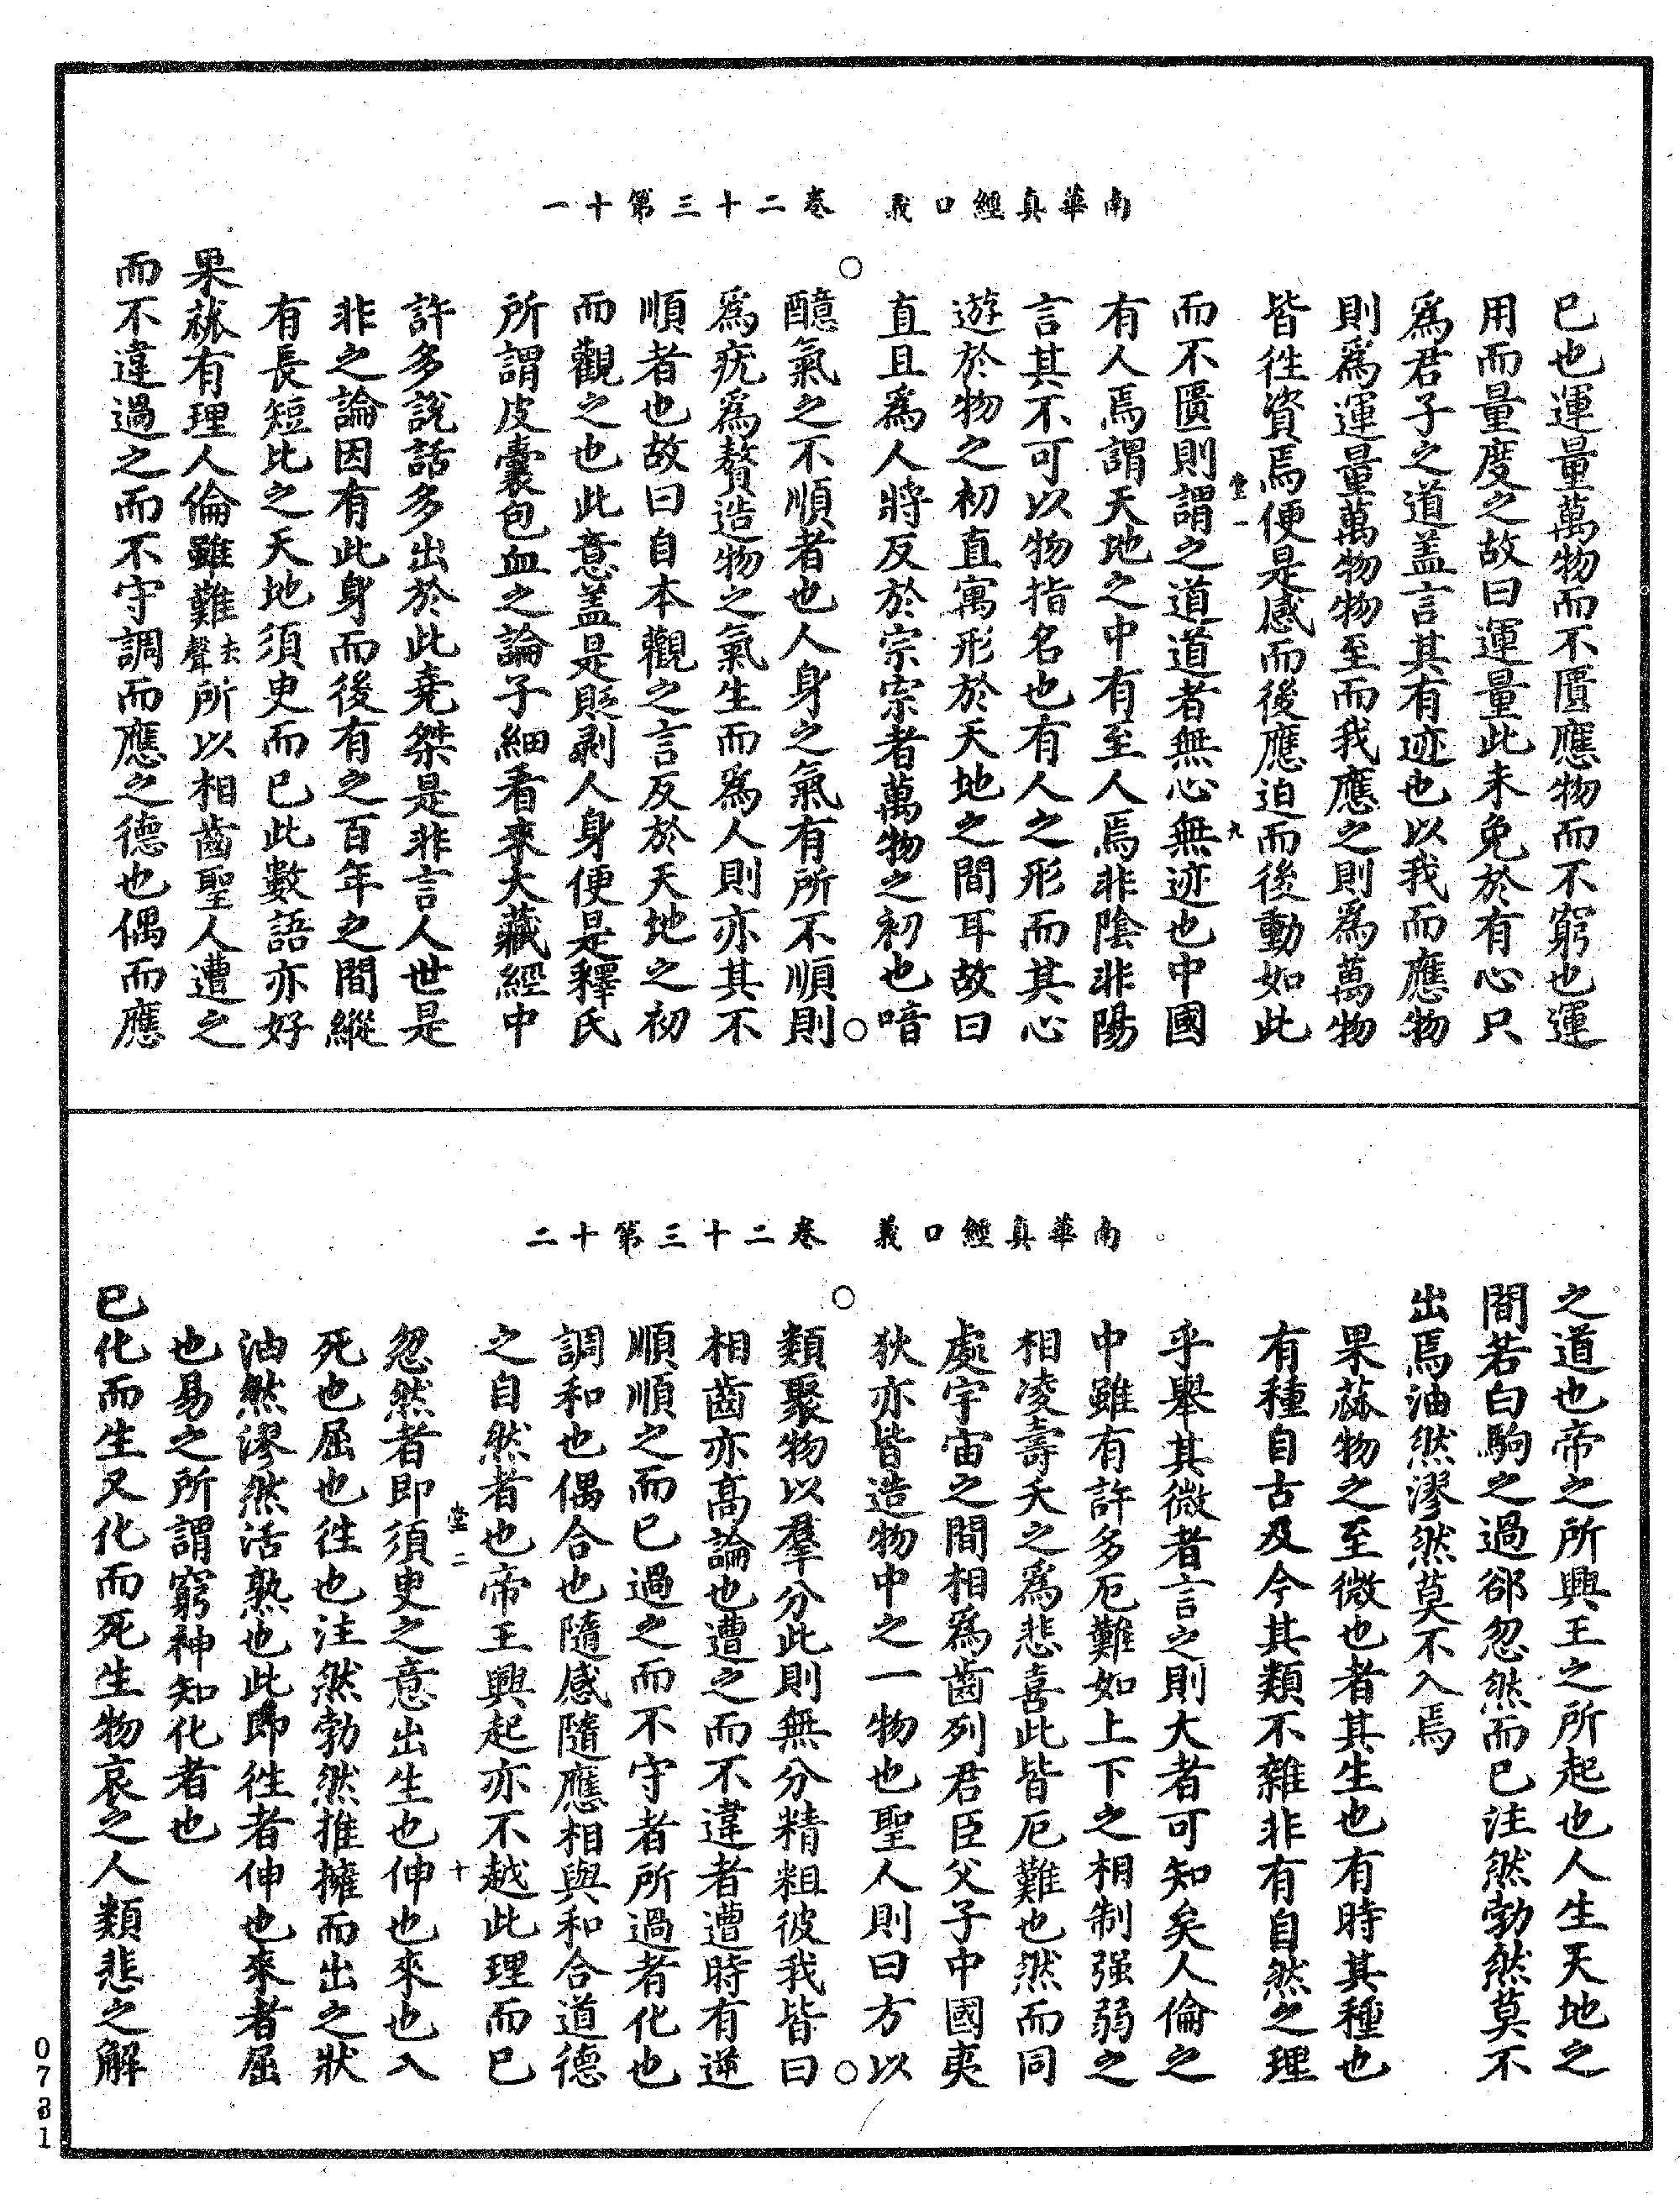 南華真經口義　卷二十三第十一
已也運量萬物而不匱應物而不窮也運
用而量度之故曰運量此未免於有心只
爲君子之道盖言其有迹也以我而應物
則爲運量萬物物至而我應之則爲萬物
皆徃資焉便是感而後應迫而後動如此
堂一　九
而不匱則謂之道道者無心無迹也中國
有人焉謂天地之中有至人焉非陰非陽
言其不可以物指名也有人之形而其心
遊於物之初直寓形於天地之間耳故曰
直且爲人將反於宗宗者萬物之初也喑
醷氣之不順者也人身之氣有所不順則
爲疣爲贅造物之氣生而爲人則亦其不
順者也故曰自本觀之言反於天地之初
而觀之也此意盖是貶剥人身便是釋氏
所謂皮囊包血之論子細看來大藏經中
許多說話多出於此堯桀是非言人世是
非之論因有此身而後有之百年之間縱
有長短比之天地須臾而已此數語亦好
果蓏有理人倫雖難去聲所以相齒聖人遭之
而不違過之而不守調而應之德也偶而應
南華真經口義　卷二十三第十二
之道也帝之所興王之所起也人生天地之
間若白駒之過郤忽然而已注然勃然莫不
出焉油然漻然莫不入焉
果蓏物之至微也者其生也有時其種也
有種自古及今其類不雜非有自然之理
乎舉其微者言之則大者可知矣人倫之
中雖有許多厄難如上下之相制强弱之
相凌壽夭之爲悲喜此皆厄難也然而同
處宇宙之間相爲齒列君臣父子中國夷
狄亦皆造物中之一物也聖人則曰方以
類聚物以羣分此則無分精粗彼我皆曰
相齒亦高論也遭之而不違者遭時有逆
順順之而已過之而不守者所過者化也
調和也偶合也隨感隨應相與和合道德
之自然者也帝王興起亦不越此理而已
堂二　十
忽然者即須臾之意出生也伸也來也入
死也屈也徃也注然勃然推擁而出之狀
油然漻然活熟也此即徃者伸也來者屈
也易之所謂窮神知化者也
已化而生又化而死生物哀之人類悲之解
0731